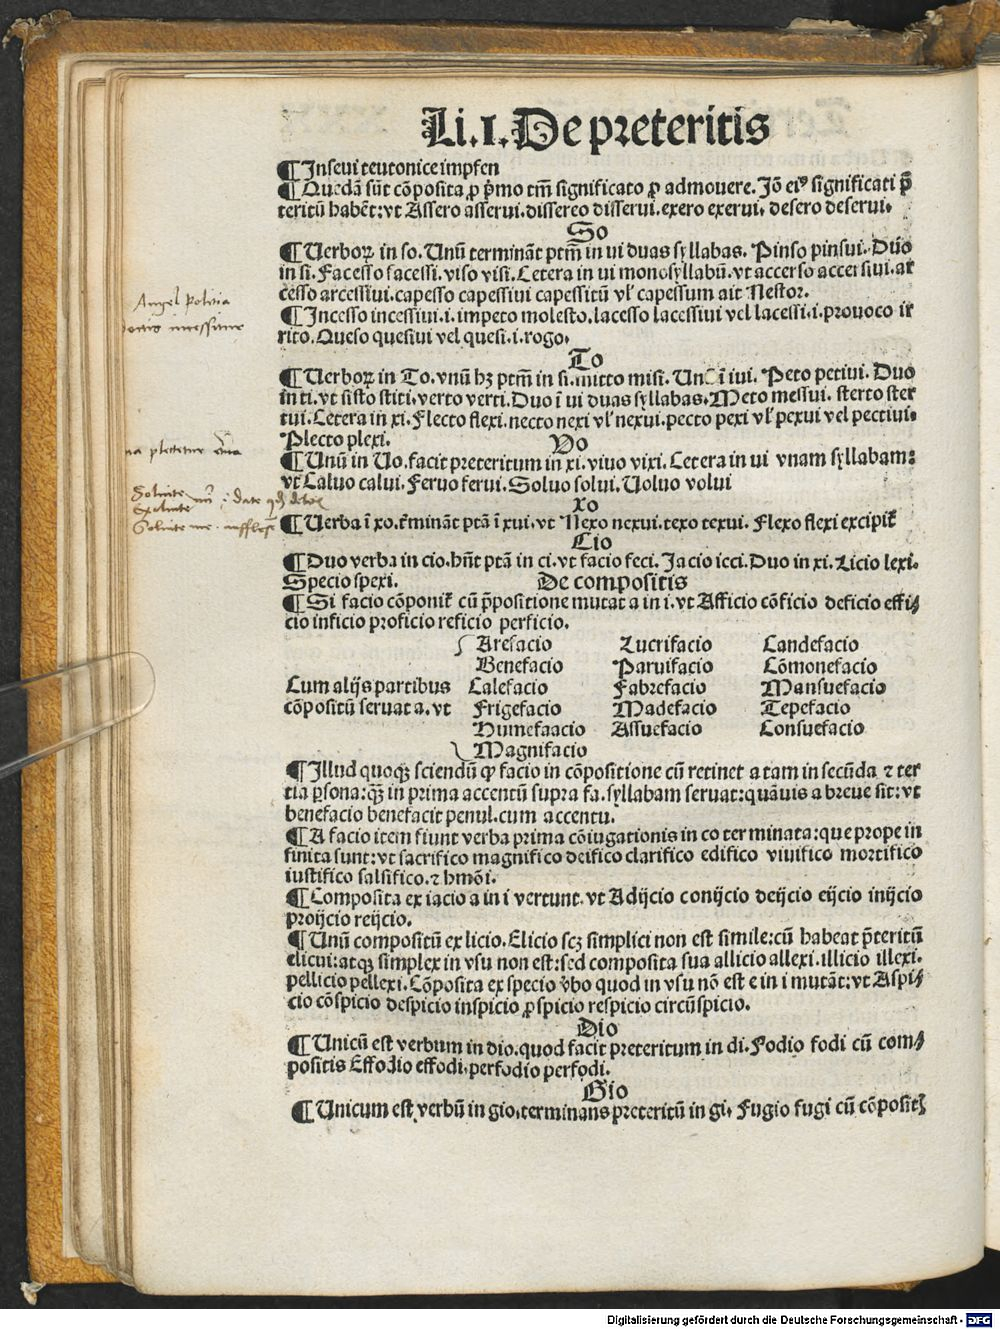 Li.I.De preteritis
¶Inseui teutonice impfen
¶Quedã sũt cõposita ꝓ p̃mo tm̃ significato ꝓ admouere. Iõ eiꝰ significati p̃
teritũ habẽt: vt Assero asserui. dissereo disserui. exero exerui. desero deserui.
So
¶Verboꝝ in so. Unũ terminãt ptm̃ in ui duas syllabas. Pinso pinsui. Duo
in si. Facesso facessi. viso visi. Cetera in ui monosyllabũ. vt accerso accersiui. ar
cesso arcessiui. capesso capessiui capessitũ vl' capessum ait Nestor.
¶Incesso incessiui. i. impeto molesto. lacesso lacessiui vel lacessi. i. prouoco ir
rito. Queso quesiui vel quesi. i. rogo.
To
¶Verboꝝ in To. vnũ hꝫ ptm̃ in si. mitto misi. Unũ ĩ iui. Peto petiui. Duo
in ti. vt sisto stiti. verto verti. Duo ĩ ui duas syllabas. Meto messui. sterto ster
tui. Cetera in xi. Flecto flexi. necto nexi vl' nexui. pecto pexi vl' pexui vel pectiui.
Plecto plexi.
Uo
¶Unũ in Uo. facit preteritum in xi. viuo vixi. Cetera in ui vnam syllabam:
vt Caluo calui. Feruo ferui. Soluo solui. Uoluo volui
xo
¶Verba ĩ xo. t̃minãt ptã ĩ xui. vt Nexo nexui. texo texui. Flexo flexi excipit̃
Cio
¶Duo verba in cio. hñt ptã in ci. vt facio feci. Jacio ieci. Duo in xi. Licio lexi.
Specio spexi.
De compositis
¶Si facio cõponit̃ cũ p̃positione mutat a in i. vt Afficio cõficio deficio effi⸗
cio inficio proficio reficio perficio.
Arefacio Lucrifacio Candefacio
Benefacio Paruifacio Cõmonefacio
Cum alijs partibus Calefacio Fabrefacio Mansuefacio
cõpositũ seruat a. vt Frigefacio Madefacio Tepefacio
Humefaacio Assuefacio Consuefacio
Magnifacio
¶Illud quoqꝫ sciendũ ꝙ facio in cõpositione cũ retinet a tam in secũda ⁊ ter
tia ꝑsona: qꝫ in prima accentũ supra fa. syllabam seruat: quãuis a breue sit: vt
benefacio benefacit penul. cum accentu.
¶A facio item fiunt verba prima cõiugationis in co terminata: que prope in
finita sunt: vt sacrifico magnifico deifico clarifico edifico viuifico mortifico
iustifico falsifico. ⁊ hmõi.
¶Composita ex iacio a in i vertunt. vt Adijcio conijcio deijcio eijcio inijcio
proijcio reijcio.
¶Unũ compositũ ex licio. Elicio scꝫ simplici non est simile: cũ habeat p̃teritũ
elicui: atqꝫ simplex in vsu non est: sed composita sua allicio allexi. illicio illexi.
pellicio pellexi. Cõposita ex specio v̾bo quod in vsu nõ est e in i mutãt: vt Aspi⸗
cio cõspicio despicio inspicio ꝑspicio respicio circũspicio.
Dio
¶Unicũ est verbum in dio. quod facit preteritum in di. Fodio fodi cũ com⸗
positis Effodio effodi. perfodio perfodi.
Gio
¶Unicum est verbũ in gio. terminans preteritũ in gi. Fugio fugi cũ cõpositꝭ
Angel Politia
Digitalisierung gefördert durch die Deutsche Forschungsgemeinschaft - DFG